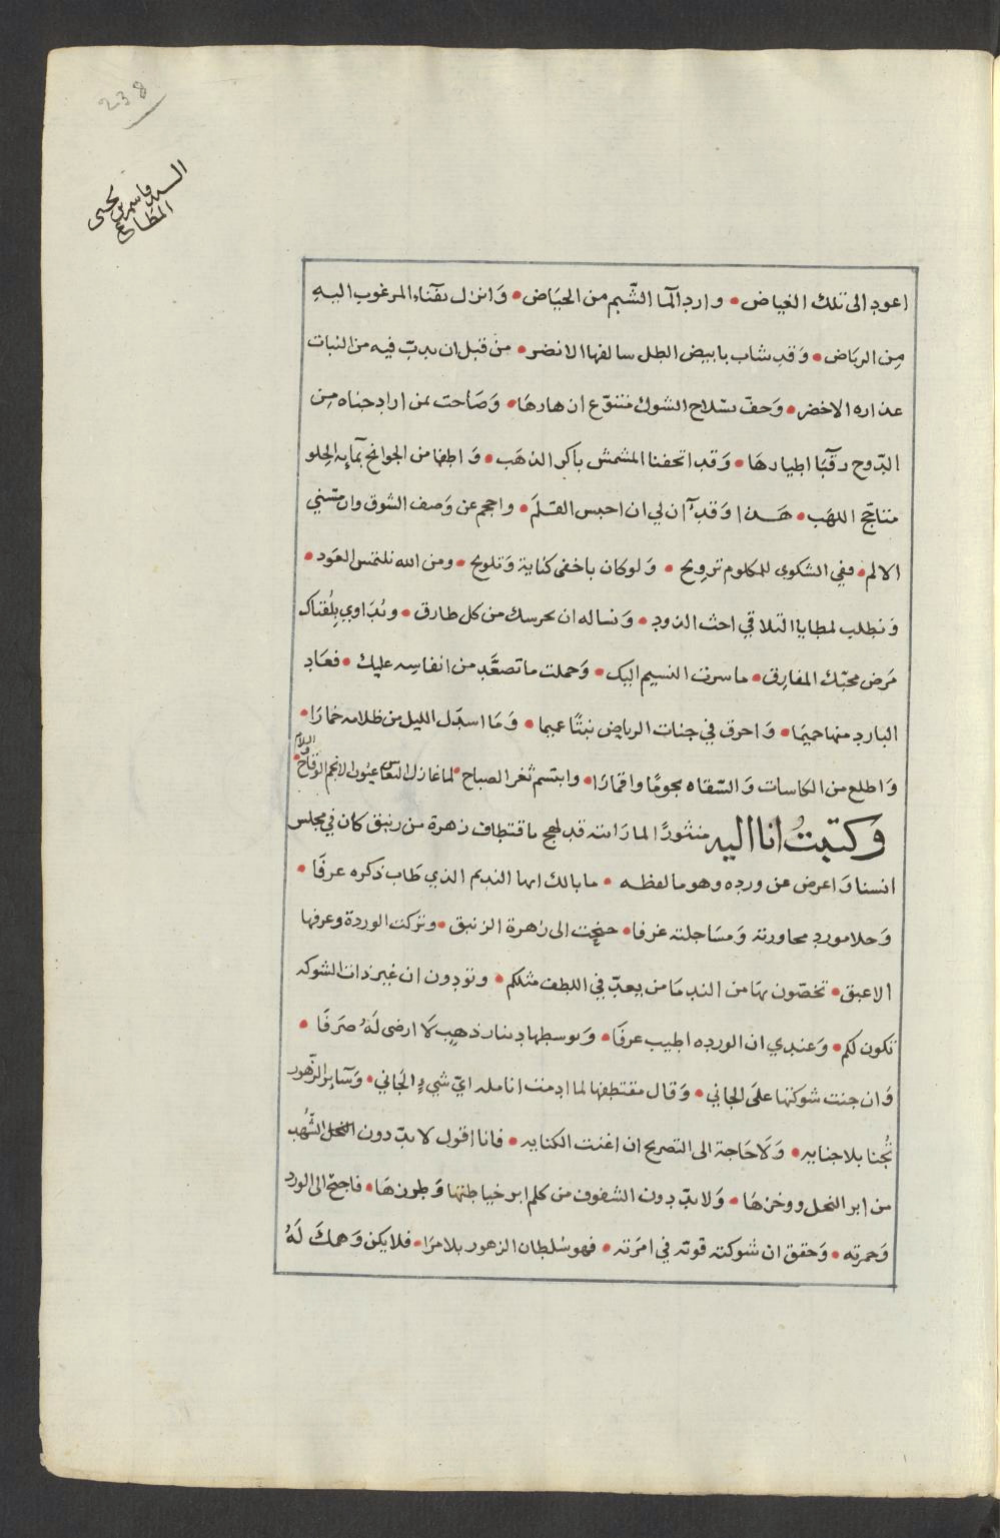 238
السيد قاسم بن يحيى
المطاع
اعود الى تلك الغياض • وارد المآ الشَّبم من الحيَاض • وَانزل بفَناء المرغوب اليهِ
مِن الريَاض • وَقد شاب بابيض الطل سالفها الانضر • من قبل ان يدبّ فيه من النبات
عذاره الاخضر • وَحفّ بسْلاح الشوك متنوّع ازهارهَا • وَصَاحت بمن اراد جناه مِن
الدّوح رقَبَا اطيارهَا • وَقد اتحفنا المشمش باكر الذهَب • وَاطفا من الجوانح بمآيه الحِلو
متاجّج اللهَب • هَـذا وَقد آن لي ان احبس القـلَم • واحجم عن وَصف الشوق وان مسّني
الالم • ففي الشكوى للمكلوم ترويح • وَلو كان باخفى كناية وَتلويح • ومن الله نلتمس العَود •
وَنطلب لمطايا التلاقي احث الذود • وَنساله ان يحرسك من كل طارق • ونُدَاوي بِلُقياك
مَرض محبّك المفارِق • ما سرت النسيم اليك • وَحملت ما تصعَّد من انفاسِه عليك • فعَاد
البارد منها حميمَا • وَاحرق في جنات الرياض نبتًا عميما • وَمَا اسدَل الليل من ظلامه خمارَا •
وَاطلع من الكاسات وَالسّقاه نجومًا واقمارَا • وابتسم ثغر الصباح • لما غازل النعاس عيون الانجم الوقاح • والسلام
وَكتبتُ انا اليه منثورًا لما رَايته قد لهج باقتطاف زهرة من زنبق كان في مجلس
انسنا وَاعرض عن ورده وهو ما لفظـه • ما بالك ايها النديم الذي طَاب ذكره عرفَا •
وَحلا مورد محاورته وَمسَاجلته غرفا • جنحت الى زهرة الزنبق • وتركت الوردة وعرفها
الاعبق • تخصّون بهَا من الندمَا من يعدّ في اللطف مثلكم • وتودون ان غير ذات الشوكه
تكون لكم • وَعندي ان الورده اطيب عرفَا • وَتوسطها دينار ذهب لَا ارضى لَهُ صَرفَا •
وَان جنت شوكتها علَى الجاني • وَقال مقتطفها لما ادمت انامله ايّ شيء الجَاني • وَسآير الزّهور
تُجنا بلا جنايه • وَلَا حَاجة الى التصريح ان اغنت الكنايه • فانا اقول لا بدّ دون النحل الشُّهد
من ابر النحل ووخزهَا • وَلا بدّ دون الشفوف من كلم ابر خياطتها وَطرزهَا • فاجنح الى الورد
وَحمرته • وَحقق ان شوكته قوته في امرَته • فهو سُلطان الزهور بلا مرَا • فلا يكن وَهمكَ لَهُ